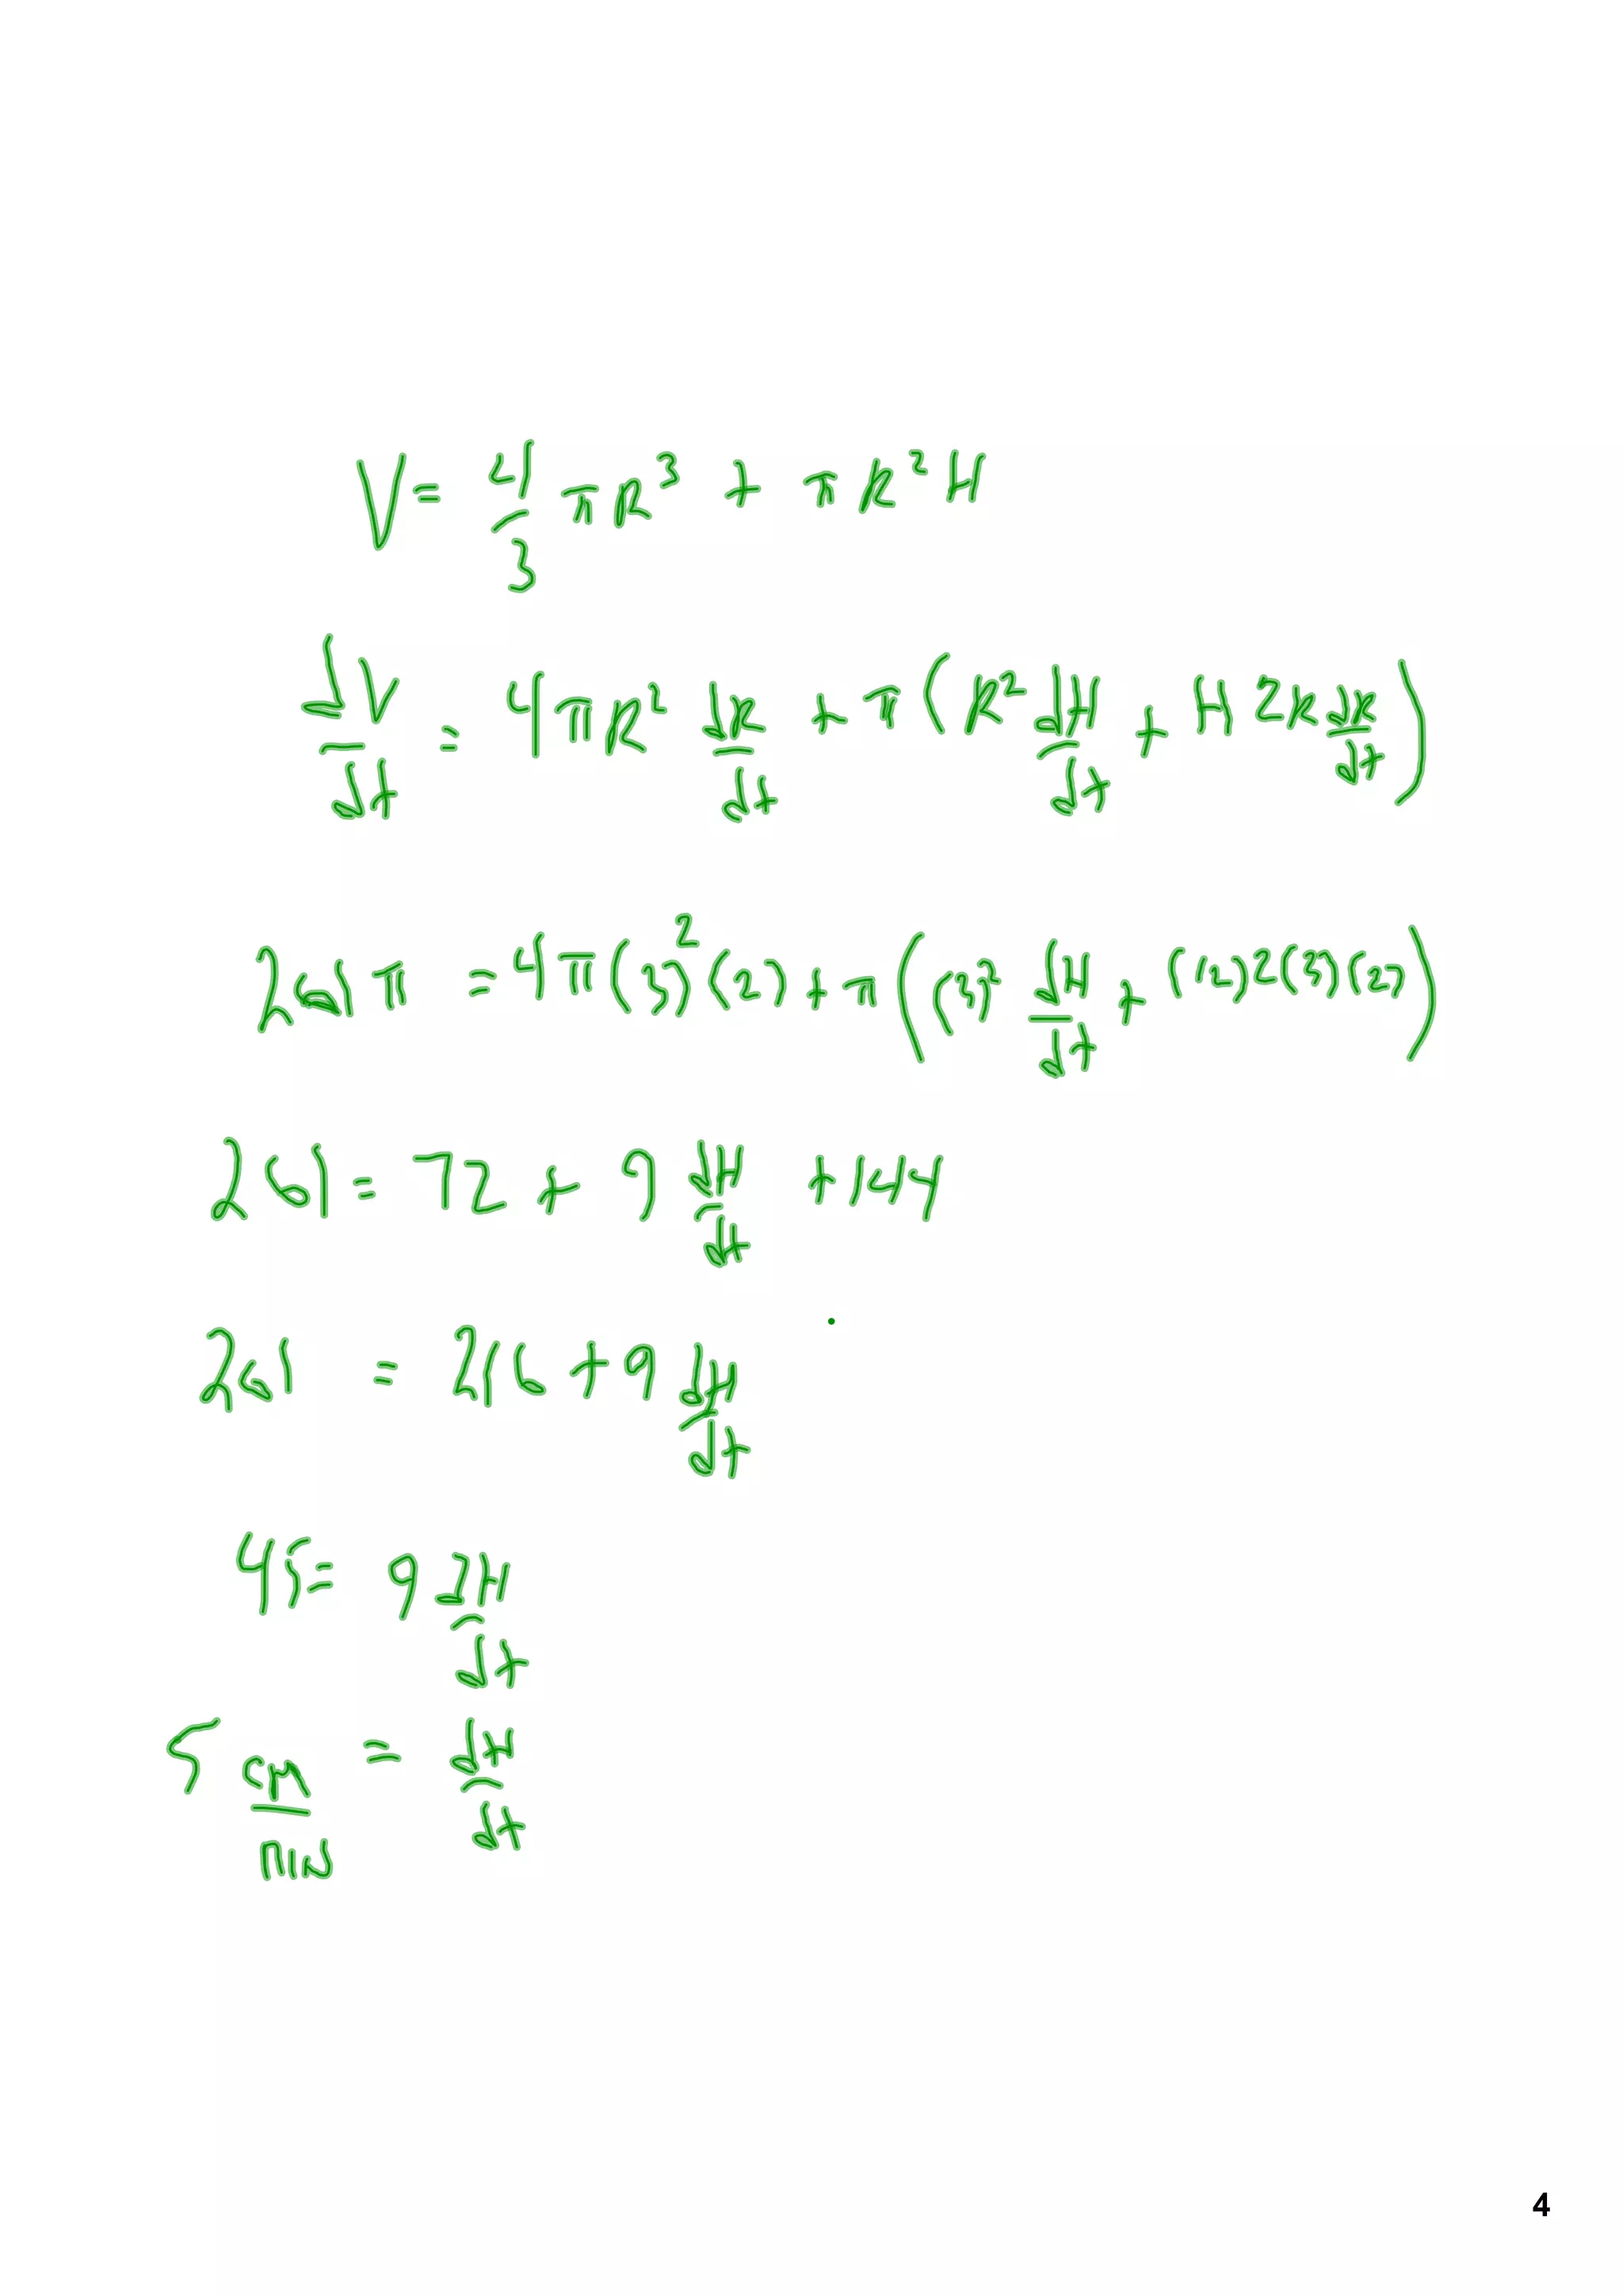 V = 4/3 πR³ + πR²H
dV/dt = 4πR² dR/dt + π(R² dH/dt + H2R dR/dt)
261π = 4π(3)²(2) + π((3)² dH/dt + (12)2(3)(2))
261 = 72 + 9 dH/dt + 144
261 = 216 + 9 dH/dt
45 = 9 dH/dt
5 cm/min = dH/dt
4